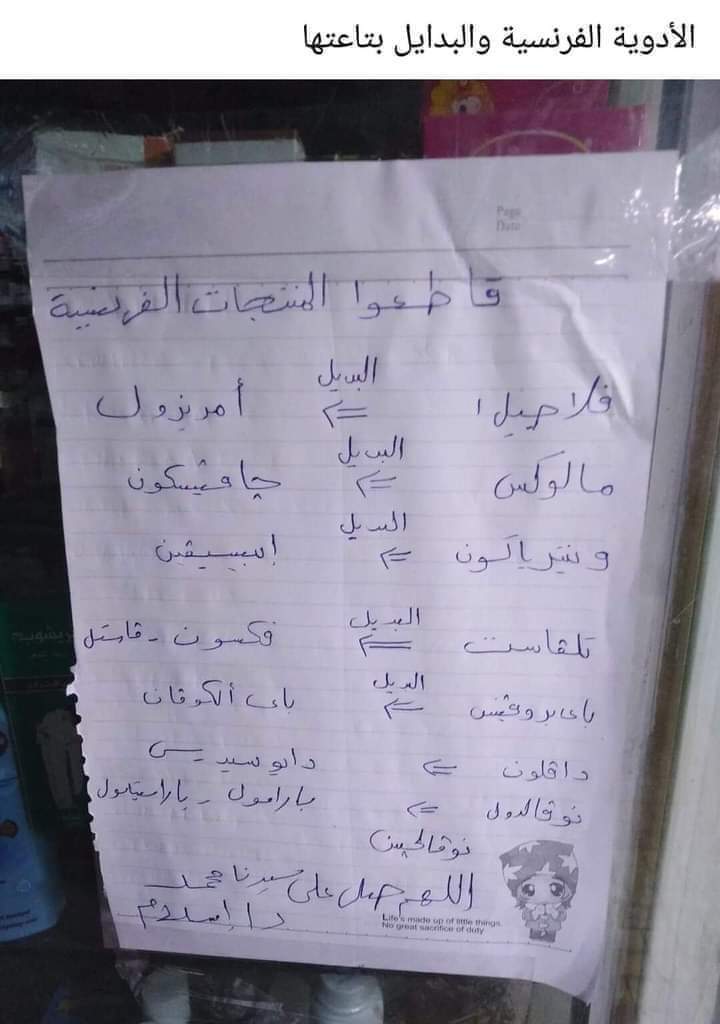 الأدوية الفرنسية والبدايل بتاعتها
Page
Date
قاطعوا المنتجات الفرنسية
فلاجيل البديل أمريزول
مالوكس البديل جافيسكون
البديل
تلفاست البديل فكسون - فاستل
باى بروفينس البديل باى ألكوفان
دافلون دايوسيديس
نوفالدول بارامول - باراسيتامول
نوفالجين
اللهم صل على سيدنا محمد
د/ إسلام
Life's made up of little things
No great sacrifice of duty